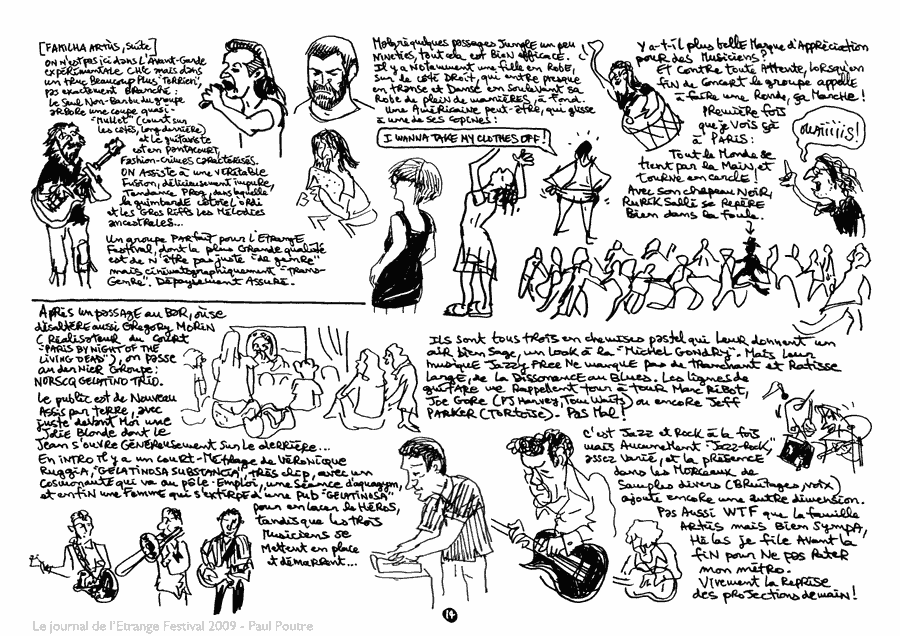 [FAMILHA ARTÚS, Suite]
ON n'est pas ici dans l'Avant-Garde
expérimentale CHIC mais dans
un truc Beaucoup Plus "Terrien",
pas exactement Branché:
Le seul Non-Barbu du groupe
arbore une coupe quasi
"Mullet" (court sur
les côtés, Long derrière)
et le guitariste
est en PANTACOURT,
Fashion-Crimes caractérisés.
ON Assiste à une VÉRITABLE
Fusion, délicieusement impure,
Tendance PROG, dans laquelle
la guimbarde côtoie l'ordi
et les Gros Riffs les Mélodies
ancestrales...
Un groupe PARFait pour l'ETRANGE
Festival, dont la plus Grande qualité
est de N'être pas juste "de genre"
mais cinématographiquement "Trans-
Genre". Dépaysement Assuré.
Malgré quelques passages Jungle un peu
Nineties, tout cela est Bien efficace.
Il y a Notamment une fille en Robe,
sur le côté DROIT, qui entre presque
en transe et Danse en soulevant sa
Robe de plein de manières, à fond.
Une Américaine, peut-être, qui glisse
à une de ses copines:
I WANNA TAKE MY CLOTHES OFF!
Y a-t-il plus belle Marque d'Appréciation
pour des Musiciens?
Et Contre toute Attente, Lorsqu'en
fin de Concert le groupe appelle
à faire une Ronde, ça Marche!
PREMIÈRE fois
que je vois ça
à PARIS:
Tout le Monde se
tient par la Main et
tourne en cercle!
Avec son chapeau NOIR
RURIK Sallé se Repère
Bien dans la foule.
ouiiiiis!
Après un passage au BAR, où se
désaltère aussi Gregory MORIN
(Réalisateur du Court
"PARIS BY NIGHT OF THE
LIVING DEAD"), on passe
au dernier Groupe:
NORSCQ GELATINO TRIO.
Le public est de Nouveau
Assis par terre, avec
juste devant Moi une
Jolie Blonde dont le
Jean s'ouvre Généreusement sur le derrière...
En intro il y a un court-Métrage de Véronique
Ruggia, "GELATINOSA SUBSTANCIA", très chip, avec un
Cosmonaute qui va au Pôle-Emploi, une séance d'aquagym,
et enfin une Femme qui s'extirpe d'une pub "GELATINOSA"
pour enlacer le HéROS,
tandis que les trois
Musiciens se
Mettent en place
et démarrent...
Ils sont tous trois en chemises pastel qui leur donnent un
air bien Sage, un Look à la "Michel GONDRY". Mais leur
musique Jazzy Free Ne manque pas de Tranchant et Ratisse
Large, de la Dissonance au Blues. Les lignes de
guitare me Rappellent tour à tour Marc Ribot,
Joe GORE (PJ Harvey, Tom Waits) ou encore Jeff
PARKER (TORTOISE). Pas Mal!
C'est Jazz et Rock à la fois
mais Aucunement "Jazz-Rock",
assez Varié, et la présence
dans les Morceaux de
Samples divers (Bruitages, voix)
ajoute encore une autre dimension.
Pas Aussi WTF que la famille
ARTÚS mais Bien Sympa,
Hélas je file Avant la
fin pour Ne pas Rater
mon métro.
Vivement la Reprise
des projections demain!
14
Le journal de l'Etrange Festival 2009 - Paul Poutre